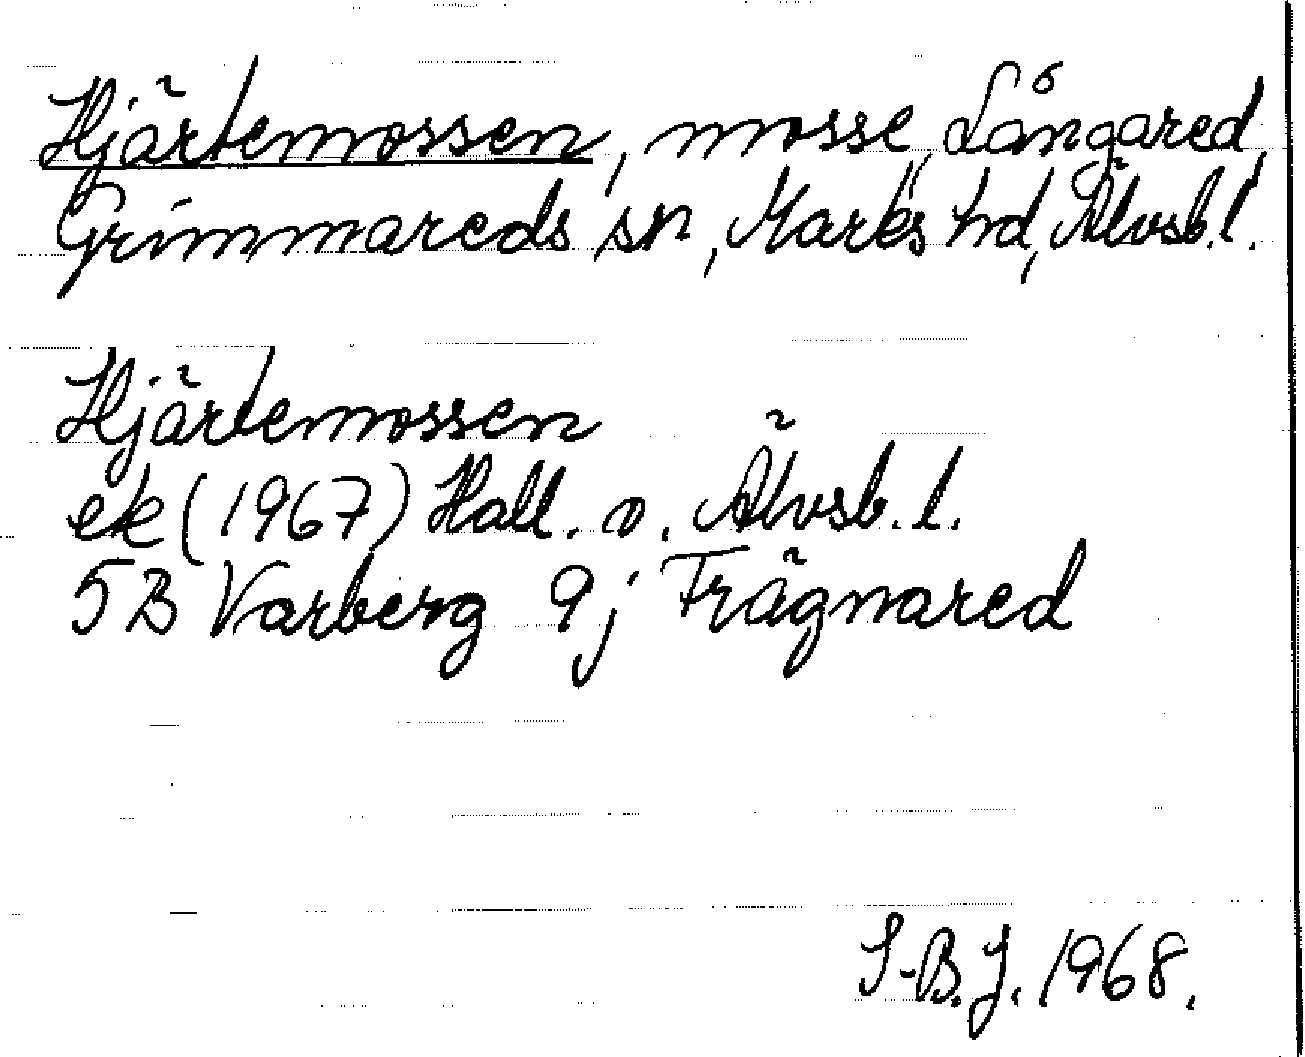 Hjärtemossen, mosse, Långared,
Grimmareds sn, Marks hd, Älvsb.l.
Hjärtemossen
ek (1967) Hall. o. Älvsb. l.
5B Varberg 9j Frägnared
S-B.J. 1968.